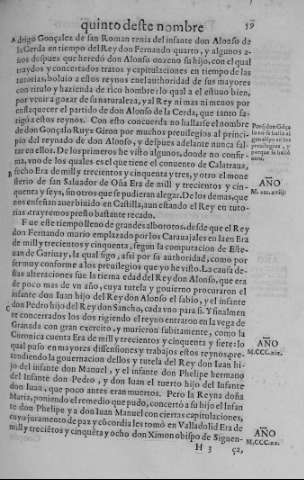 quinto deste nombre
59
A drigo Gonçalez de san Roman tenia del infante don Alonso de
la Cerda en tiempo del Rey don Fernando quarto, y algunos a-
ños despues que heredo don Alonso onzeno su hijo, con el qual
traydos y concertados tratos y capitulaciones en tiempo de las
tutorias, boluio a estos reynos en el authoridad de sus mayores
con titulo y hazienda de rico hombre: lo qual a el estuuo bien,
por venir a gozar de su naturaleza, y al Rey ni mas ni menos por
enflaquecer el partido de don Alonso de la Cerda, que tanto fa-
tigó a estos reynos. Con esto concuerda no hallarse el nombre
de don Gonçalo Ruyz Giron por muchos preuilegios al princi-
pio del reynado de don Alonso, y despues adelante nunca fal-
tar en ellos. De los primeros he visto algunos, donde no confir-
ma, vno de los quales es el que tiene el conuento de Calatraua,
B fecho Era de mill y trecientos y cinquenta y tres, y otro el mone
sterio de san Saluador de Oña Era de mill y trecientos y cin-
quenta y seys, sin otros que se pudieran alegar. De los demas, que
nos enseñan auer biuido en Castilla, aun estando el Rey en tuto-
rias, trayremos presto bastante recado.
F ue este tiempo lleno de grandes alborotos, desde que el Rey
don Fernando murio emplazado por los Carauajales en la era Era
de mill y trecientos y cinquenta, segun la computacion de Este-
uan de Garibay, la qual sigo, assi por su authoridad, como por
ser muy conforme a los preuilegios que yo he visto. La causa de-
stas alteraciones fue la tierna edad del Rey don Alonso, que era
de poco mas de vn año, cuya tutela y gouierno procuraron el
infante don Iuan hijo del Rey don Alonso el sabio, y el infante
don Pedro hijo del Rey don Sancho, cada vno para si. Y finalmen
C te concertados los dos rigiendo el reyno entraron en la vega de
Granada con gran exercito, y murieron subitamente, como la
Coronica cuenta Era de mill y trecientos y cinquenta y siete: lo
qual puso en mayores dissensiones y trabajos estos reynos, pre-
tendiendo la gouernacion dellos y tutela del Rey don Iuan hi-
jo del infante don Manuel, y el infante don Phelipe hermano
del infante don Pedro, y don Iuan el tuerto hijo del Infante
don Iuan, que poco antes eran muertos. Pero la Reyna doña
Maria, poniendo el remedio que pudo, concertó a su hijo el Infan
te don Phelipe y a don Iuan Manuel con ciertas capitulaciones,
cuyo juramento de paz y cõcordia les tomó en Valladolid Era de
mill y treciētos y cinquēta y ocho don Ximon obispo de Siguen-
H 3 ça,
AÑO
AÑO
M.CCC.xix.
AÑO
M.CCC.xx.